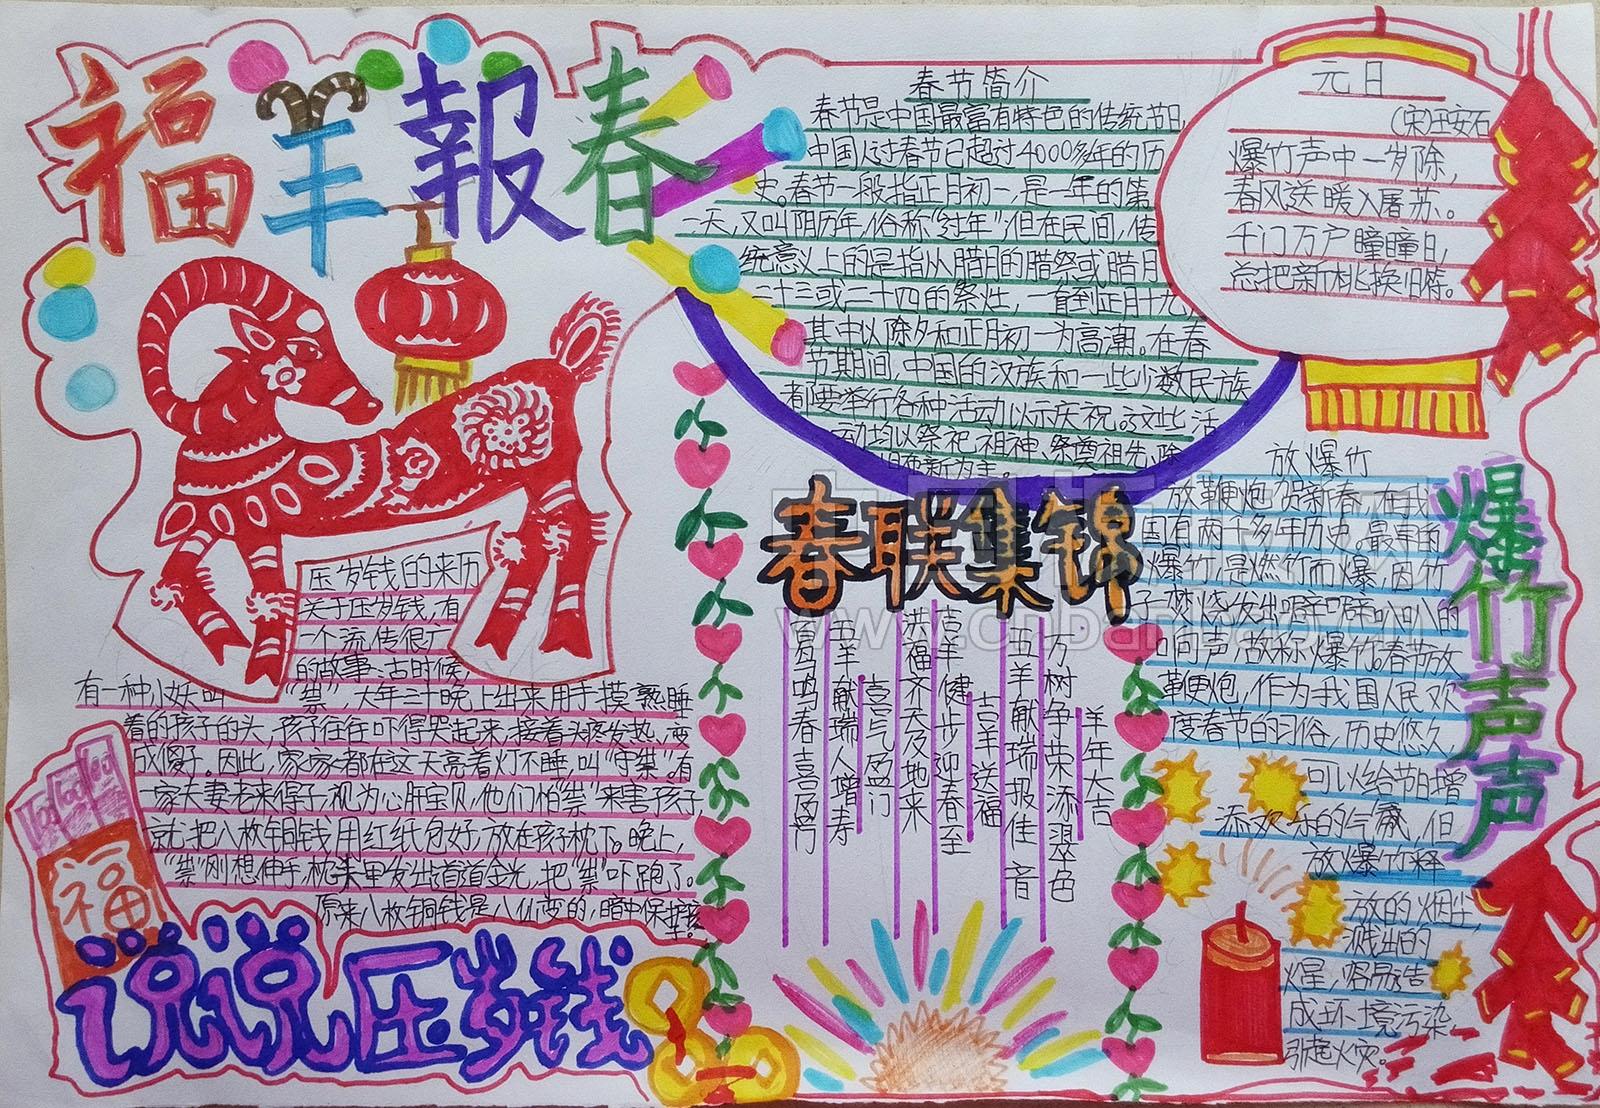 福羊報春
春节简介
春节是中国最富有特色的传统节日,
中国人过春节已超过4000多年的历
史。春节一般指正月初一,是一年的第
一天,又叫阴历年,俗称“过年”,但在民间,传
统意义上的是指从腊月的腊祭或腊月
二十三或二十四的祭灶,一直到正月十九,
其中以除夕和正月初一为高潮。在春
节期间,中国的汉族和一些少数民族
都要举行各种活动以示庆祝。这些活
动均以祭祀祖神、祭奠祖先、除
旧布新为主。
元日
(宋)王安石
爆竹声中一岁除,
春风送暖入屠苏。
千门万户曈曈日,
总把新桃换旧符。
压岁钱的来历
关于压岁钱,有
一个流传很广
的故事:古时候,
有一种小妖叫“祟”,大年三十晚上出来用手摸熟睡
着的孩子的头,孩子往往吓得哭起来,接着头疼发热,变
成傻子。因此,家家都在这天亮着灯不睡,叫“守祟”。有
一家夫妻老来得子,视为心肝宝贝,他们怕“祟”来害孩子,
就把八枚铜钱用红纸包好,放在孩子枕下。晚上,
“祟”刚想伸手,枕头里发出道道金光,把“祟”吓跑了。
原来八枚铜钱是八仙变的,暗中保护孩
子。
福
说说压岁钱
春联集锦
羊年大吉
万树争荣添翠色
五羊献瑞报佳音
吉羊送福
吉羊健步迎春至
洪福齐天及地来
喜气盈门
五羊献瑞人增寿
百鸟鸣春喜盈门
放爆竹
放鞭炮贺新春,在我
国有两千多年历史。最早的
爆竹,是燃竹而爆,因竹
子焚烧发出噼噼叭叭的
响声,故称爆竹。春节放
鞭炮,作为我国人民欢
度春节的习俗,历史悠久,
可以给节日增
添欢乐的气氛,但
放爆竹释
放的烟尘,
溅出的
火星,容易造
成环境污染,
引起火灾。
爆竹声声